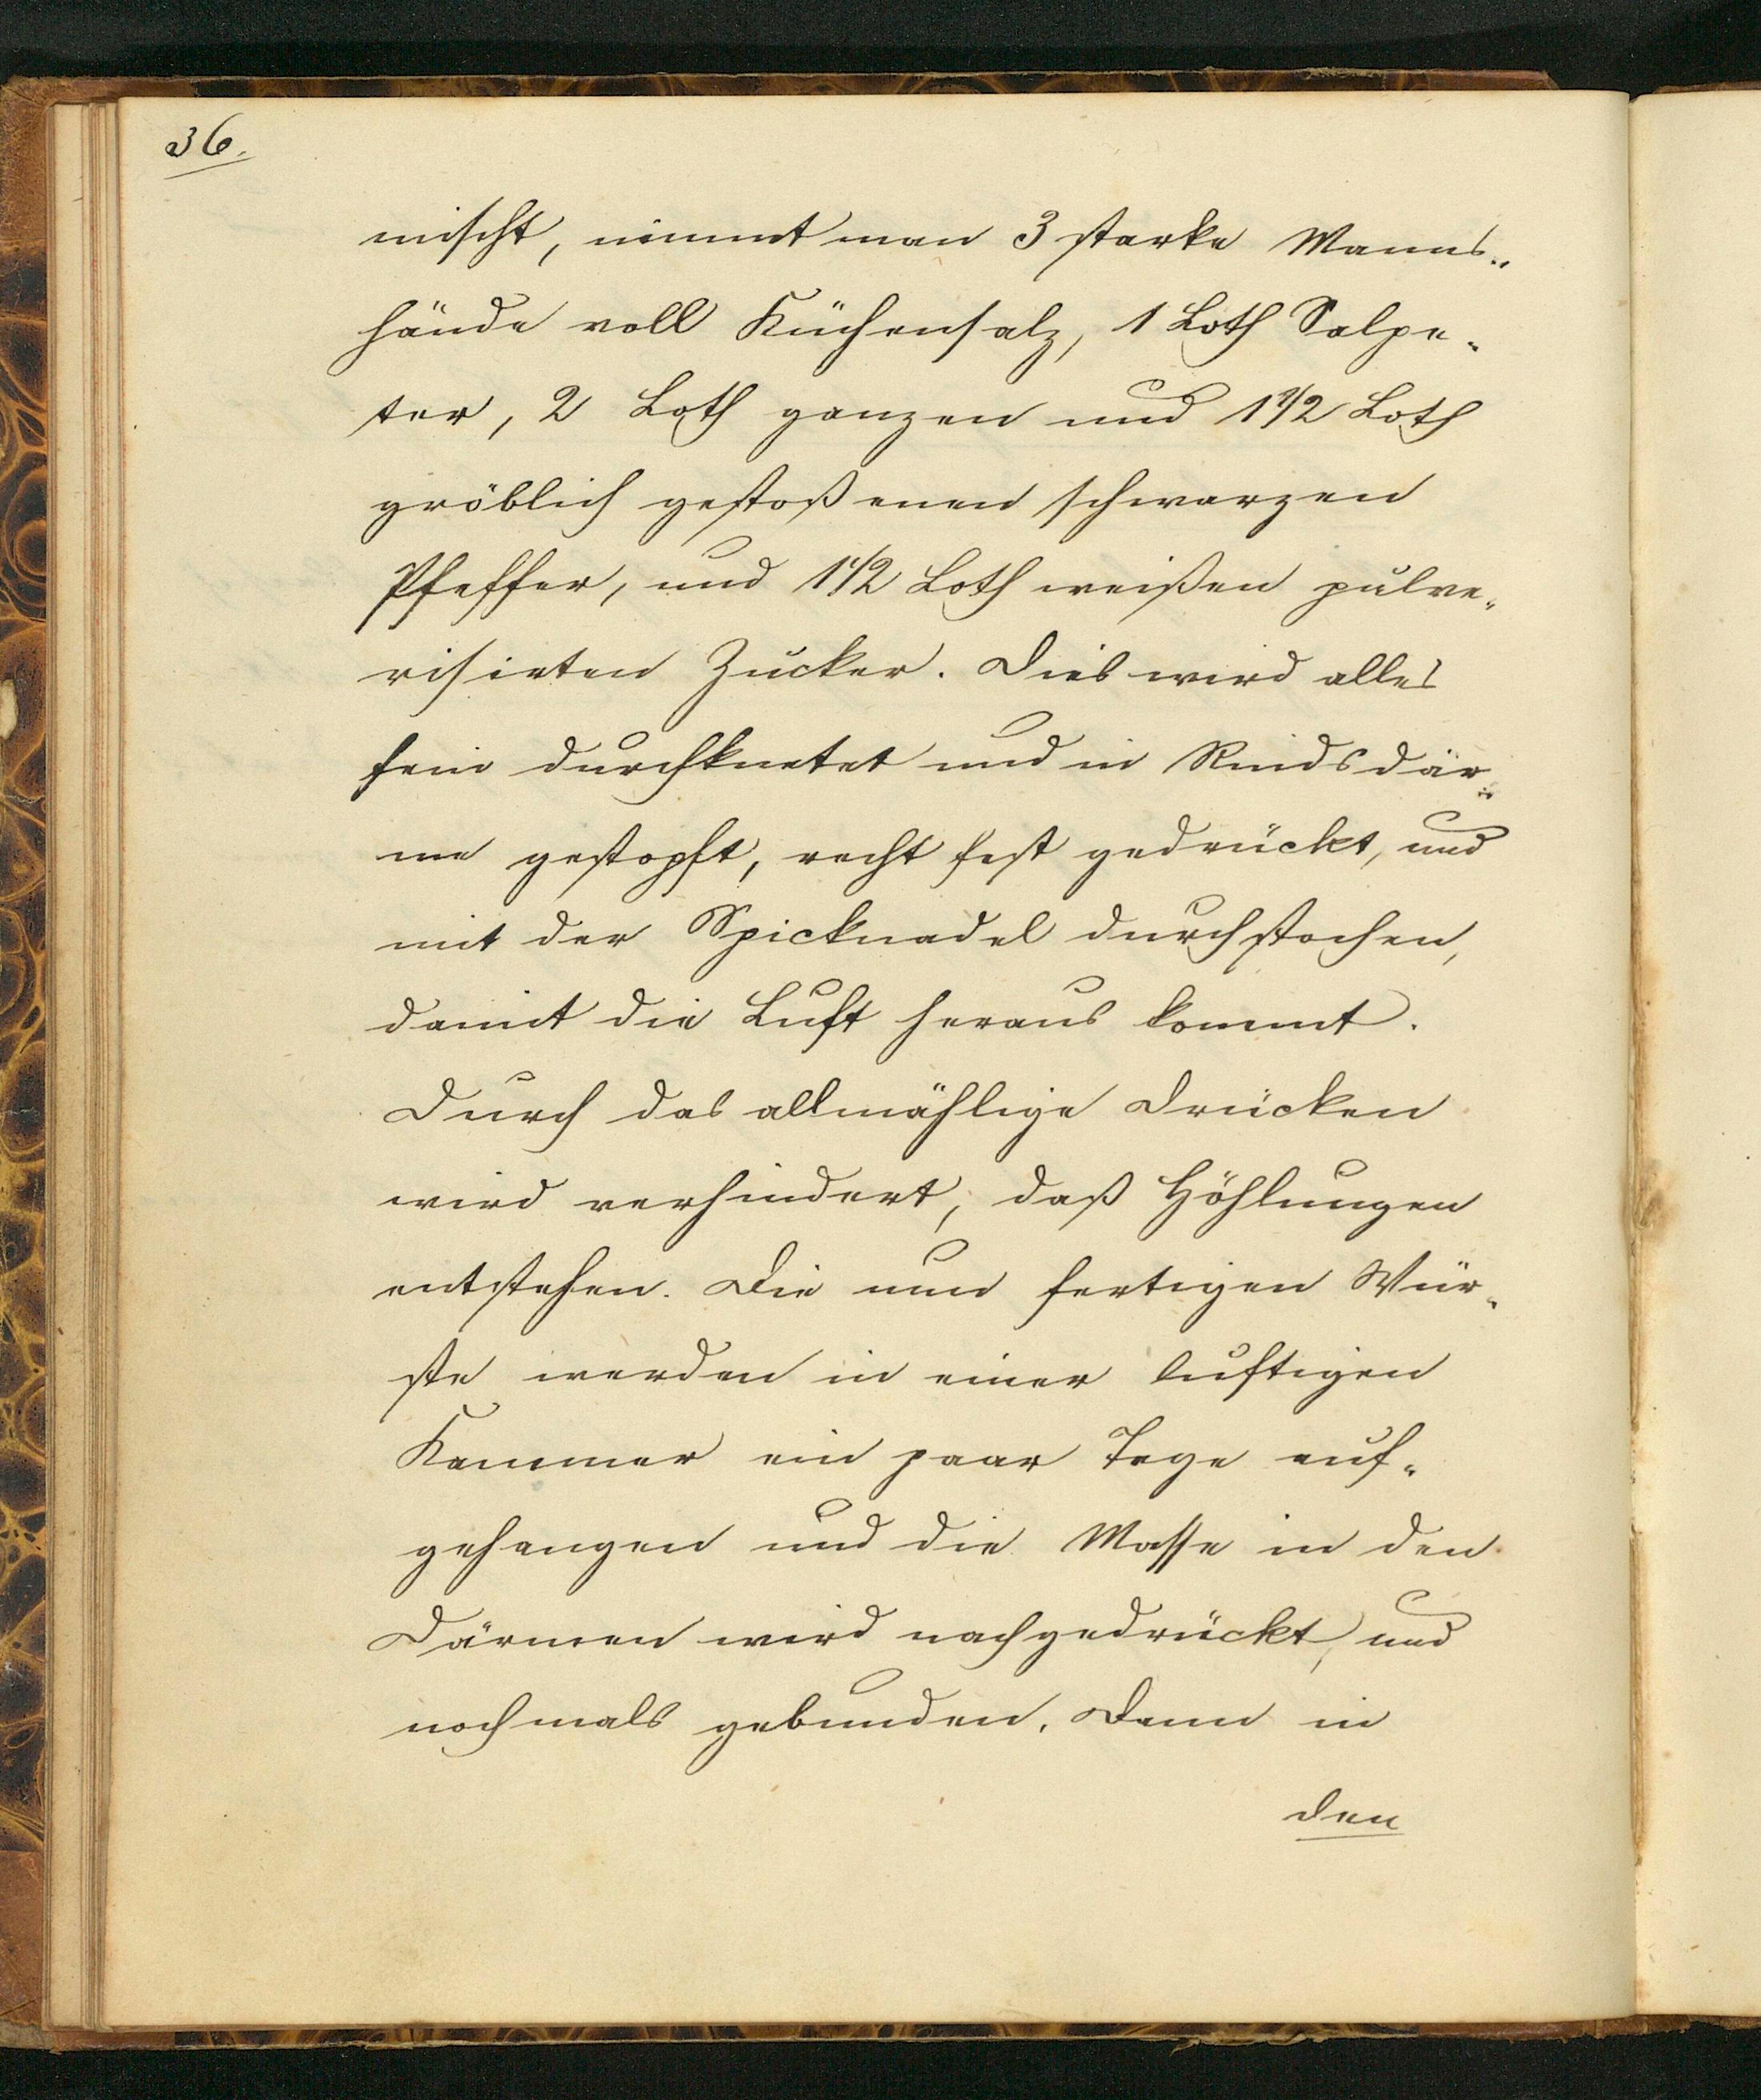 36.
mischt, nimmt man 3 starke Manns-
hände voll Küchensalz, 1 Loth Salpe-
ter, 2 Loth ganzen und 1 1/2 Loth
gröblich gestoßenen schwarzen
Pfeffer, und 1 1/2 Loth weißen pulve-
risirten Zucker. Dies wird alles
fein durchknetet und in Rindsdär-
me gestopft, recht fest gedrückt, und
mit der Spicknadel durchstochen,
damit die Luft heraus kommt.
Durch das allmählige Drücken
wird verhindert, daß Höhlungen
entstehen. Die nun fertigen Wür-
ste werden in einer luftigen
Kammer ein paar Tage auf-
gehangen und die Masse in den
Därmen wird nachgedrückt, und
nochmals gebunden. Dann in
den